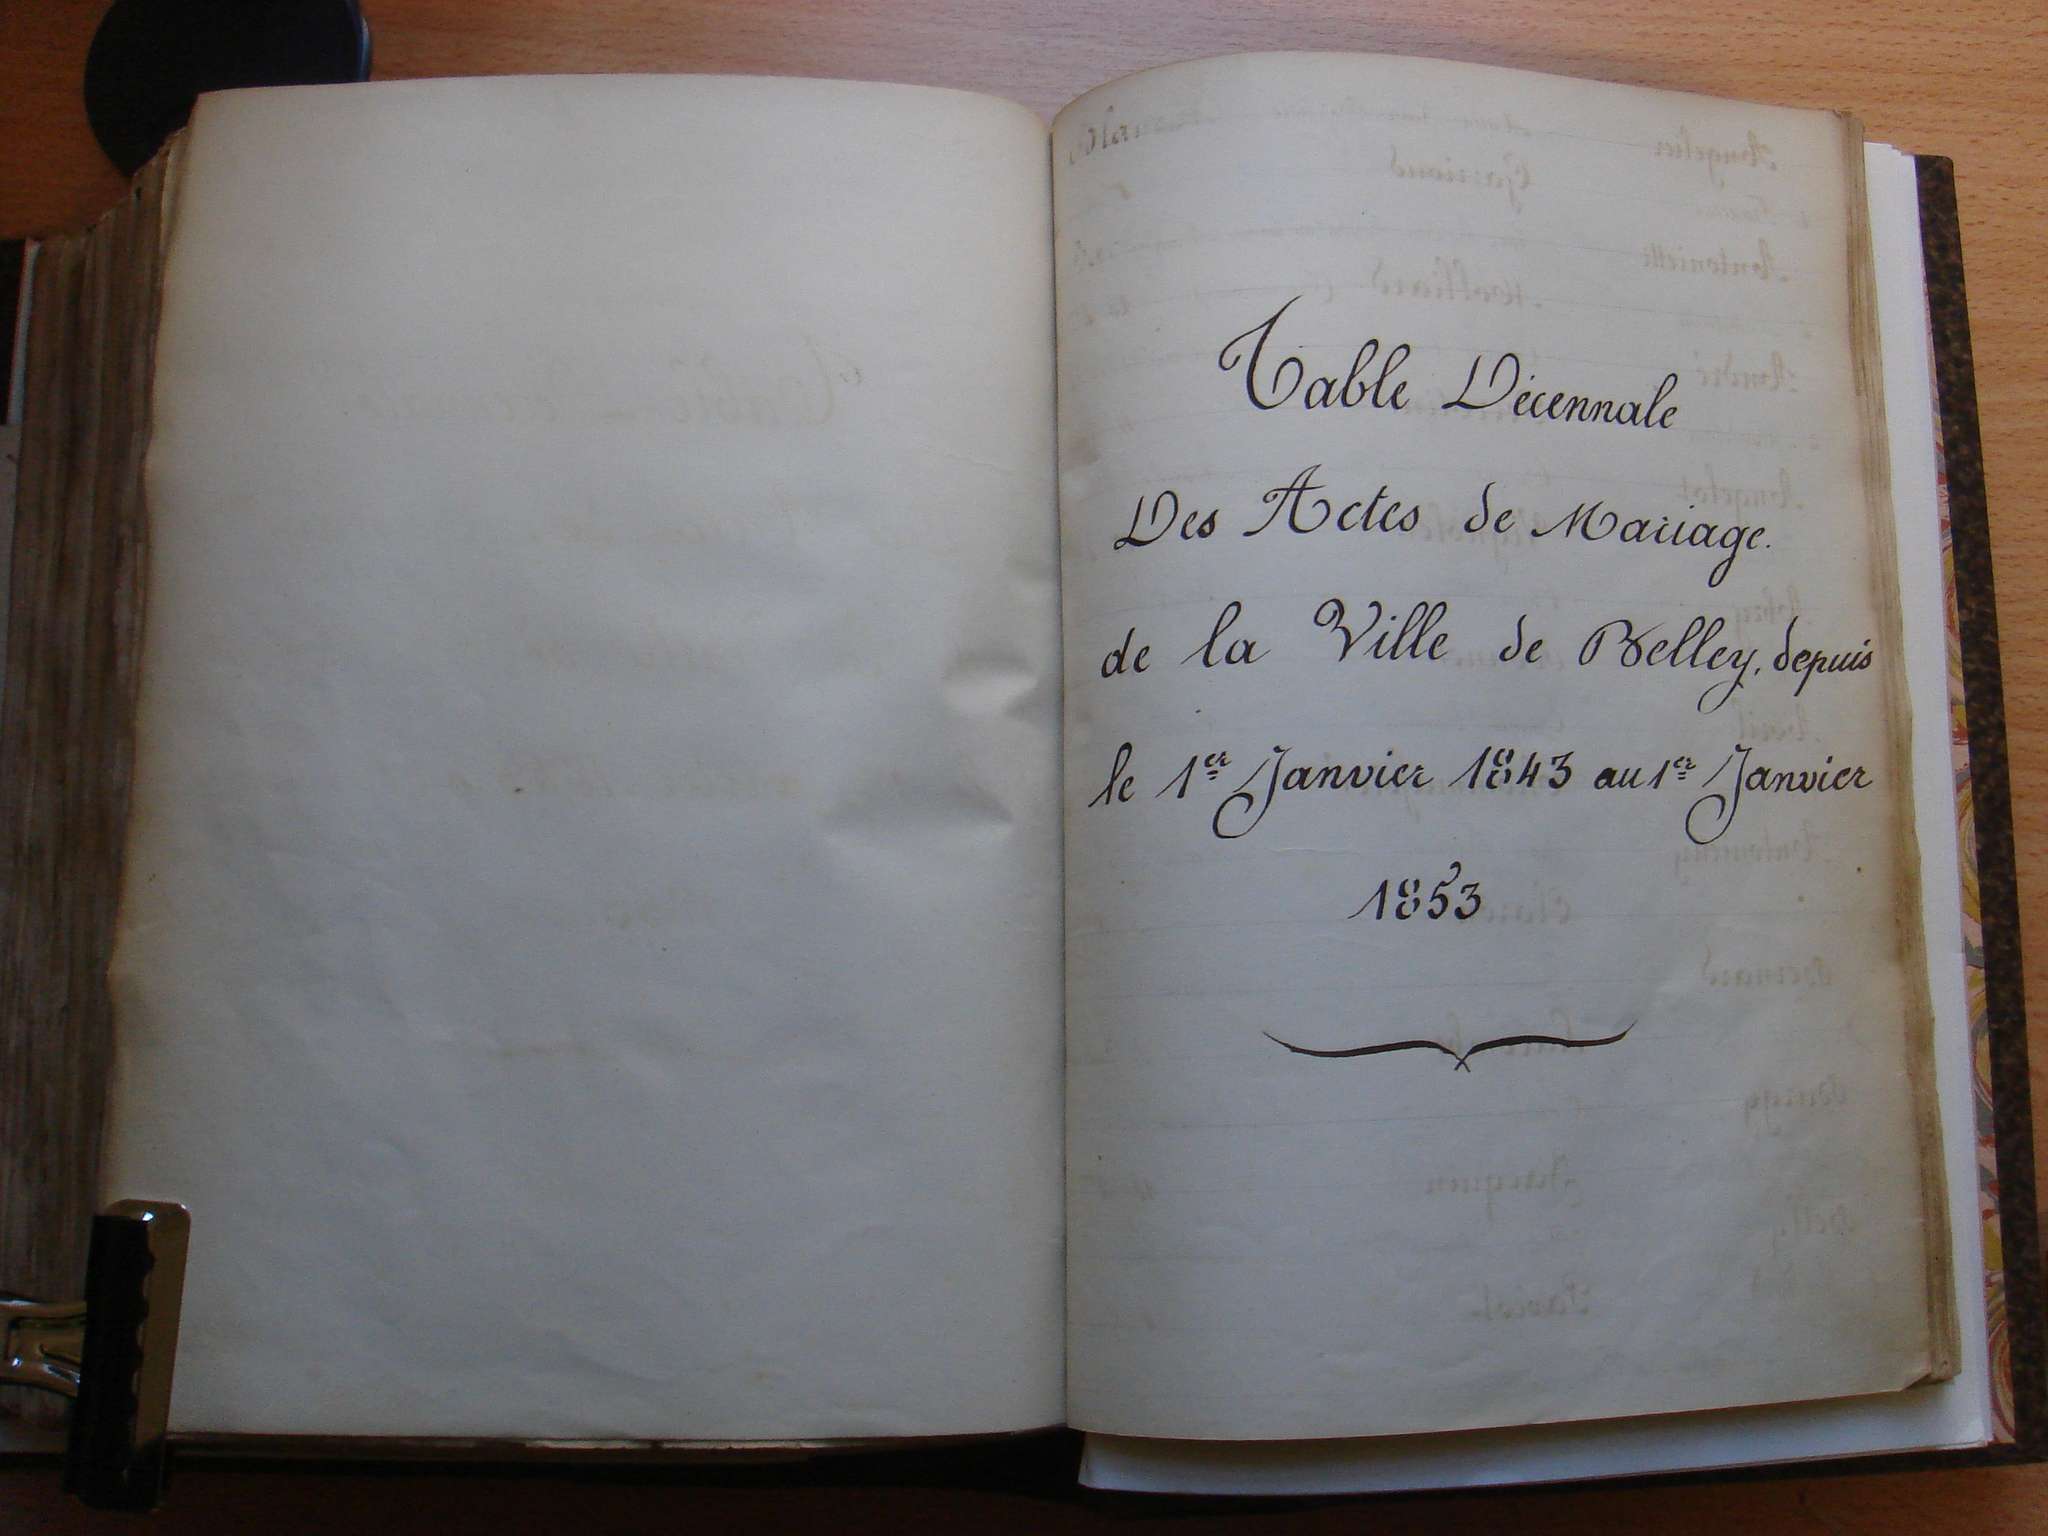 Table Décennale
Des Actes de Mariage.
de la Ville de Belley, depuis
le 1er Janvier 1843 au 1er Janvier
1853